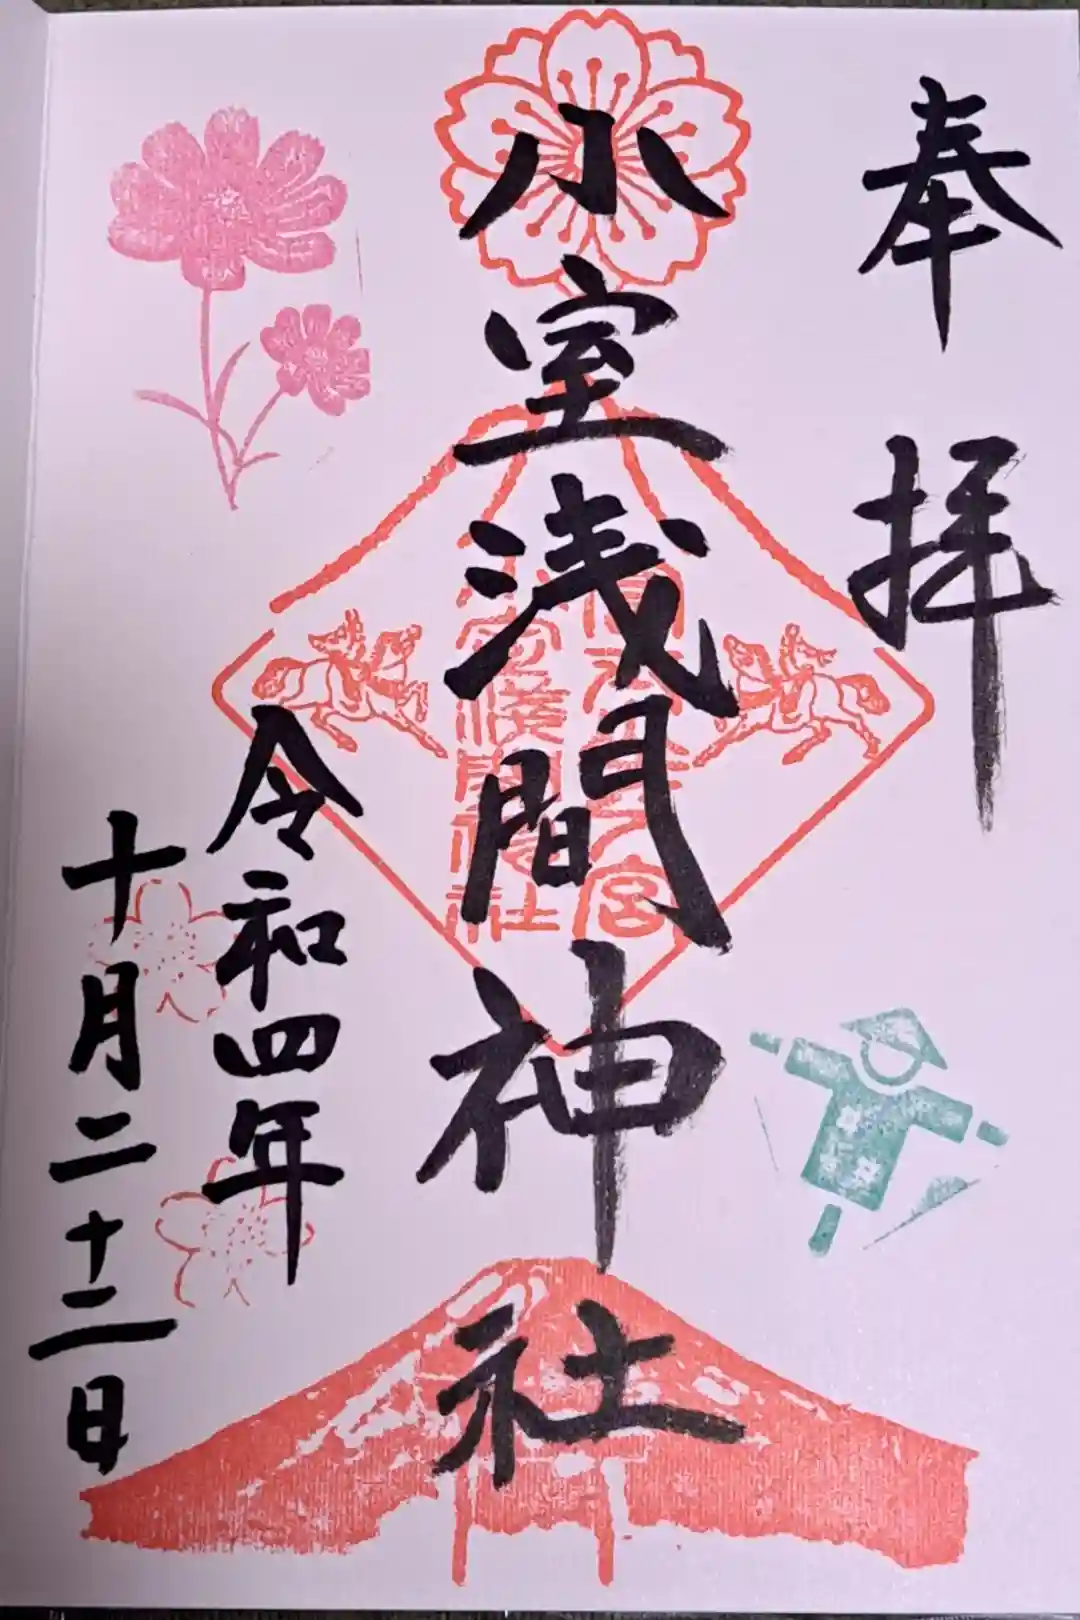 奉拝
小室浅間神社
令和四年
十月二十二日
小室淺間神社